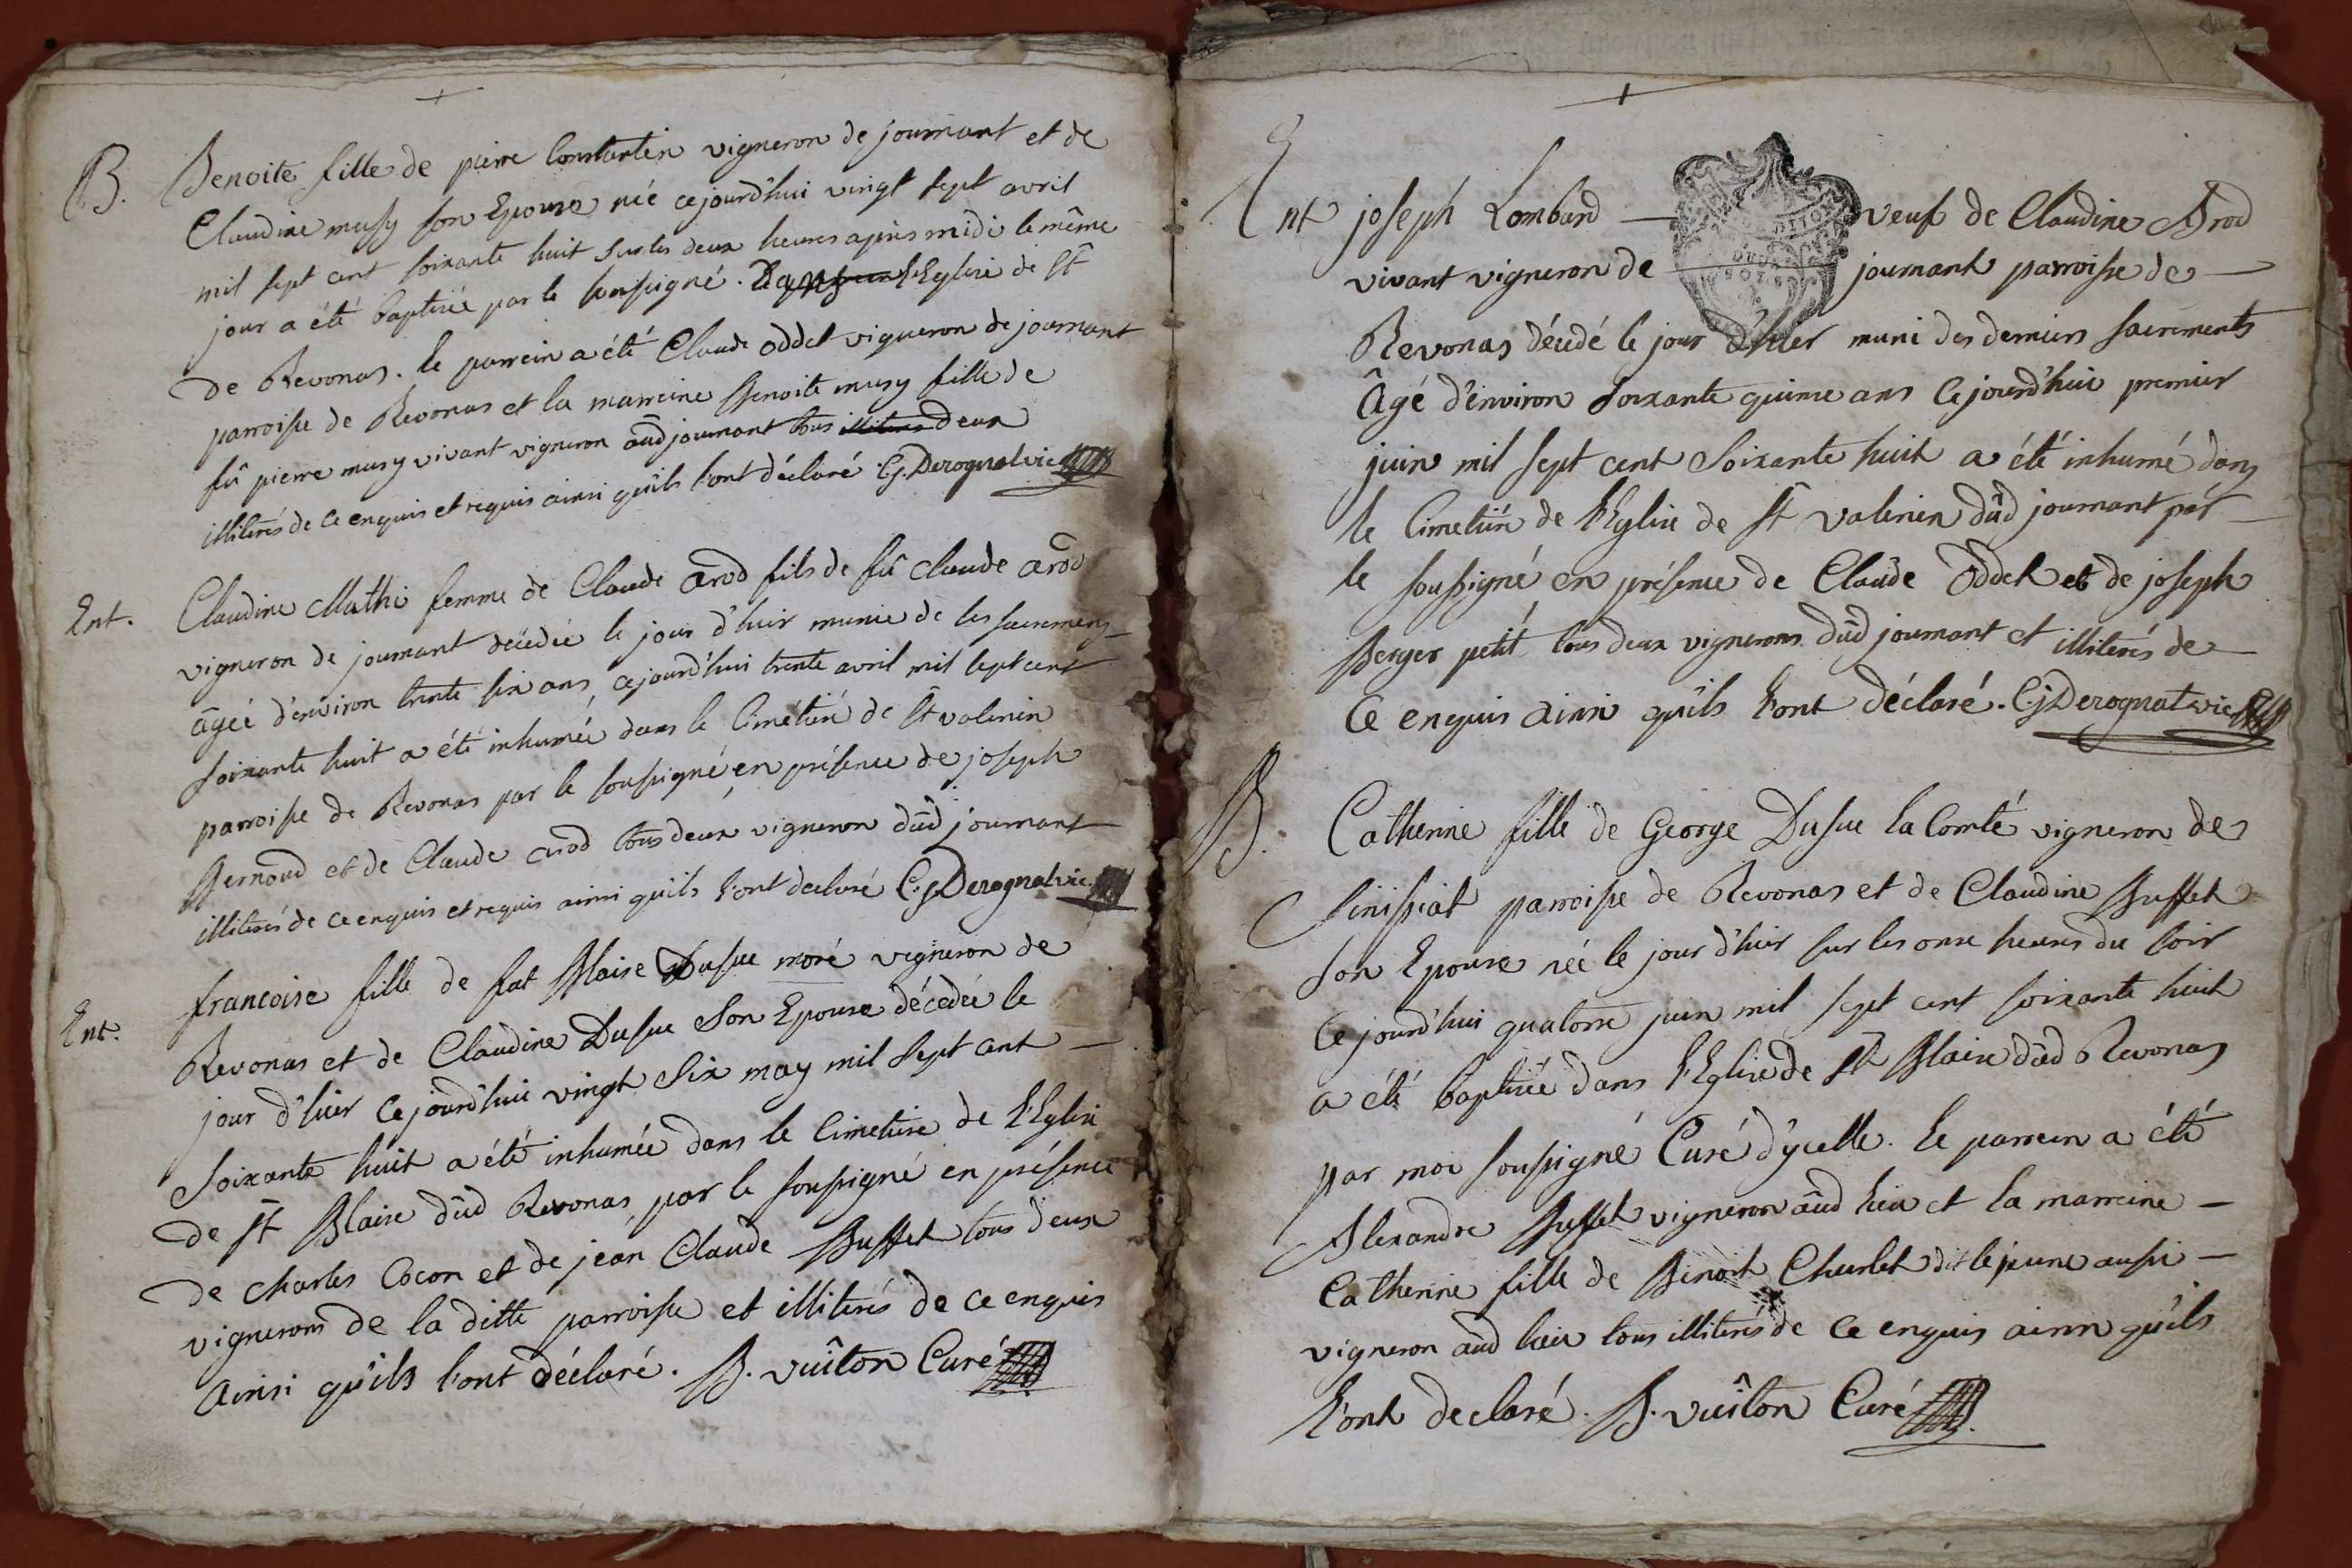 B. Benoite fille de pierre Constantin vigneron de journant et de
Claudine musy son Epouse née cejourd'hui vingt sept avril
mil sept cent soixante huit sur les deux heures après midi le même
jour a été baptisée par le soussigné. Dans l'Eglise de St
de Revonas. le parrein a été Claude oddet vigneron de journant
parroisse de Revonas et la marreine Benoite musy fille de
fû pierre musy vivant vigneron aûd journant tous illiterés deux
illiterés de ce enquis et requis ainsi qu'ils l'ont déclaré C.j. Derognat vic
Ent. Claudine Mathi femme de Claude arod fils de fû claude arod
vigneron de journant décédée le jour d'hier munie de ses sacremens
âgée d'environ trente six ans, cejourd'hui trente avril mil sept cent
soixante huit a été inhumée dans le Cimetiére de St valerien
parroisse de Revonas par le soussigné, en présence de joseph
Bernoud et de Claude arod tous deux vigneron dûd journant
illiterés de ce enquis et requis ainsi qu'ils l'ont declaré C.j. Derognat vic.
Ent. francoise fille de fat Blaise Dusuc moré vigneron de
Revonas et de Claudine Dusuc son Epouse décédée le
jour d'hier Cejourd'hui vingt six may mil sept cent
soixante huit a été inhumée dans le Cimetiére de l'Eglise
de St Blaise dûd Revonas, par le soussigné en présence
de charles Cocon et de jean Claude Buffet tous deux
vignerons de la ditte parroisse et illiterés de ce enquis
ainsi qu'ils l'ont déclaré. B. vuîton Curé
Ent joseph Lombard veuf de Claudine Arod
vivant vigneron de journant parroisse de
Revonas décédé le jour d'hier muni des derniers sacrements
Âgé d'environ soixante quinze ans Cejourd'hui premier
juin mil sept cent soixante huit a été inhumé dans
le Cimetiére de l'Eglise de St valerien dûd journant par
le soussigné en présence de Claude Oddet et de joseph
Berger petit tous deux vignerons dûd journant et illiterés de
Ce enquis ainsi qu'ils l'ont déclaré. C.j. Derognat vic
B. Catherine fille de George Dusuc la Comté vigneron de
Sinissiat parroisse de Revonas et de Claudine Buffet
son Epouse née le jour d'hier sur les onze heures du soir
Cejourd'hui quatorze juin mil sept cent soixante huit
a été baptisée dans l'Eglise de St Blaise dûd Revonas
par moi soussigné Curé d'ycelle. le parrein a été
Alexandre Buffet vigneron aûd lieu et la marreine
Catherine fille de Benoit Churlet dit le jeune aussi
vigneron aûd lieu tous illiterés de ce enquis ainsi qu'ils
l'ont declaré. B. vuîton Curé